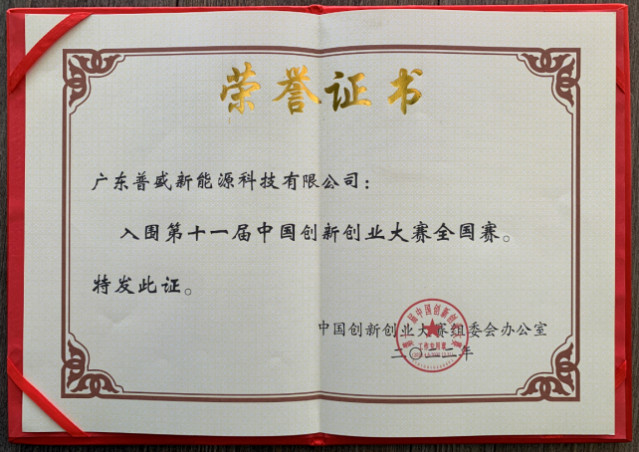 荣誉证书
广东普盛新能源科技有限公司：
入围第十一届中国创新创业大赛全国赛。
特发此证。
中国创新创业大赛组委会办公室
二〇二二年